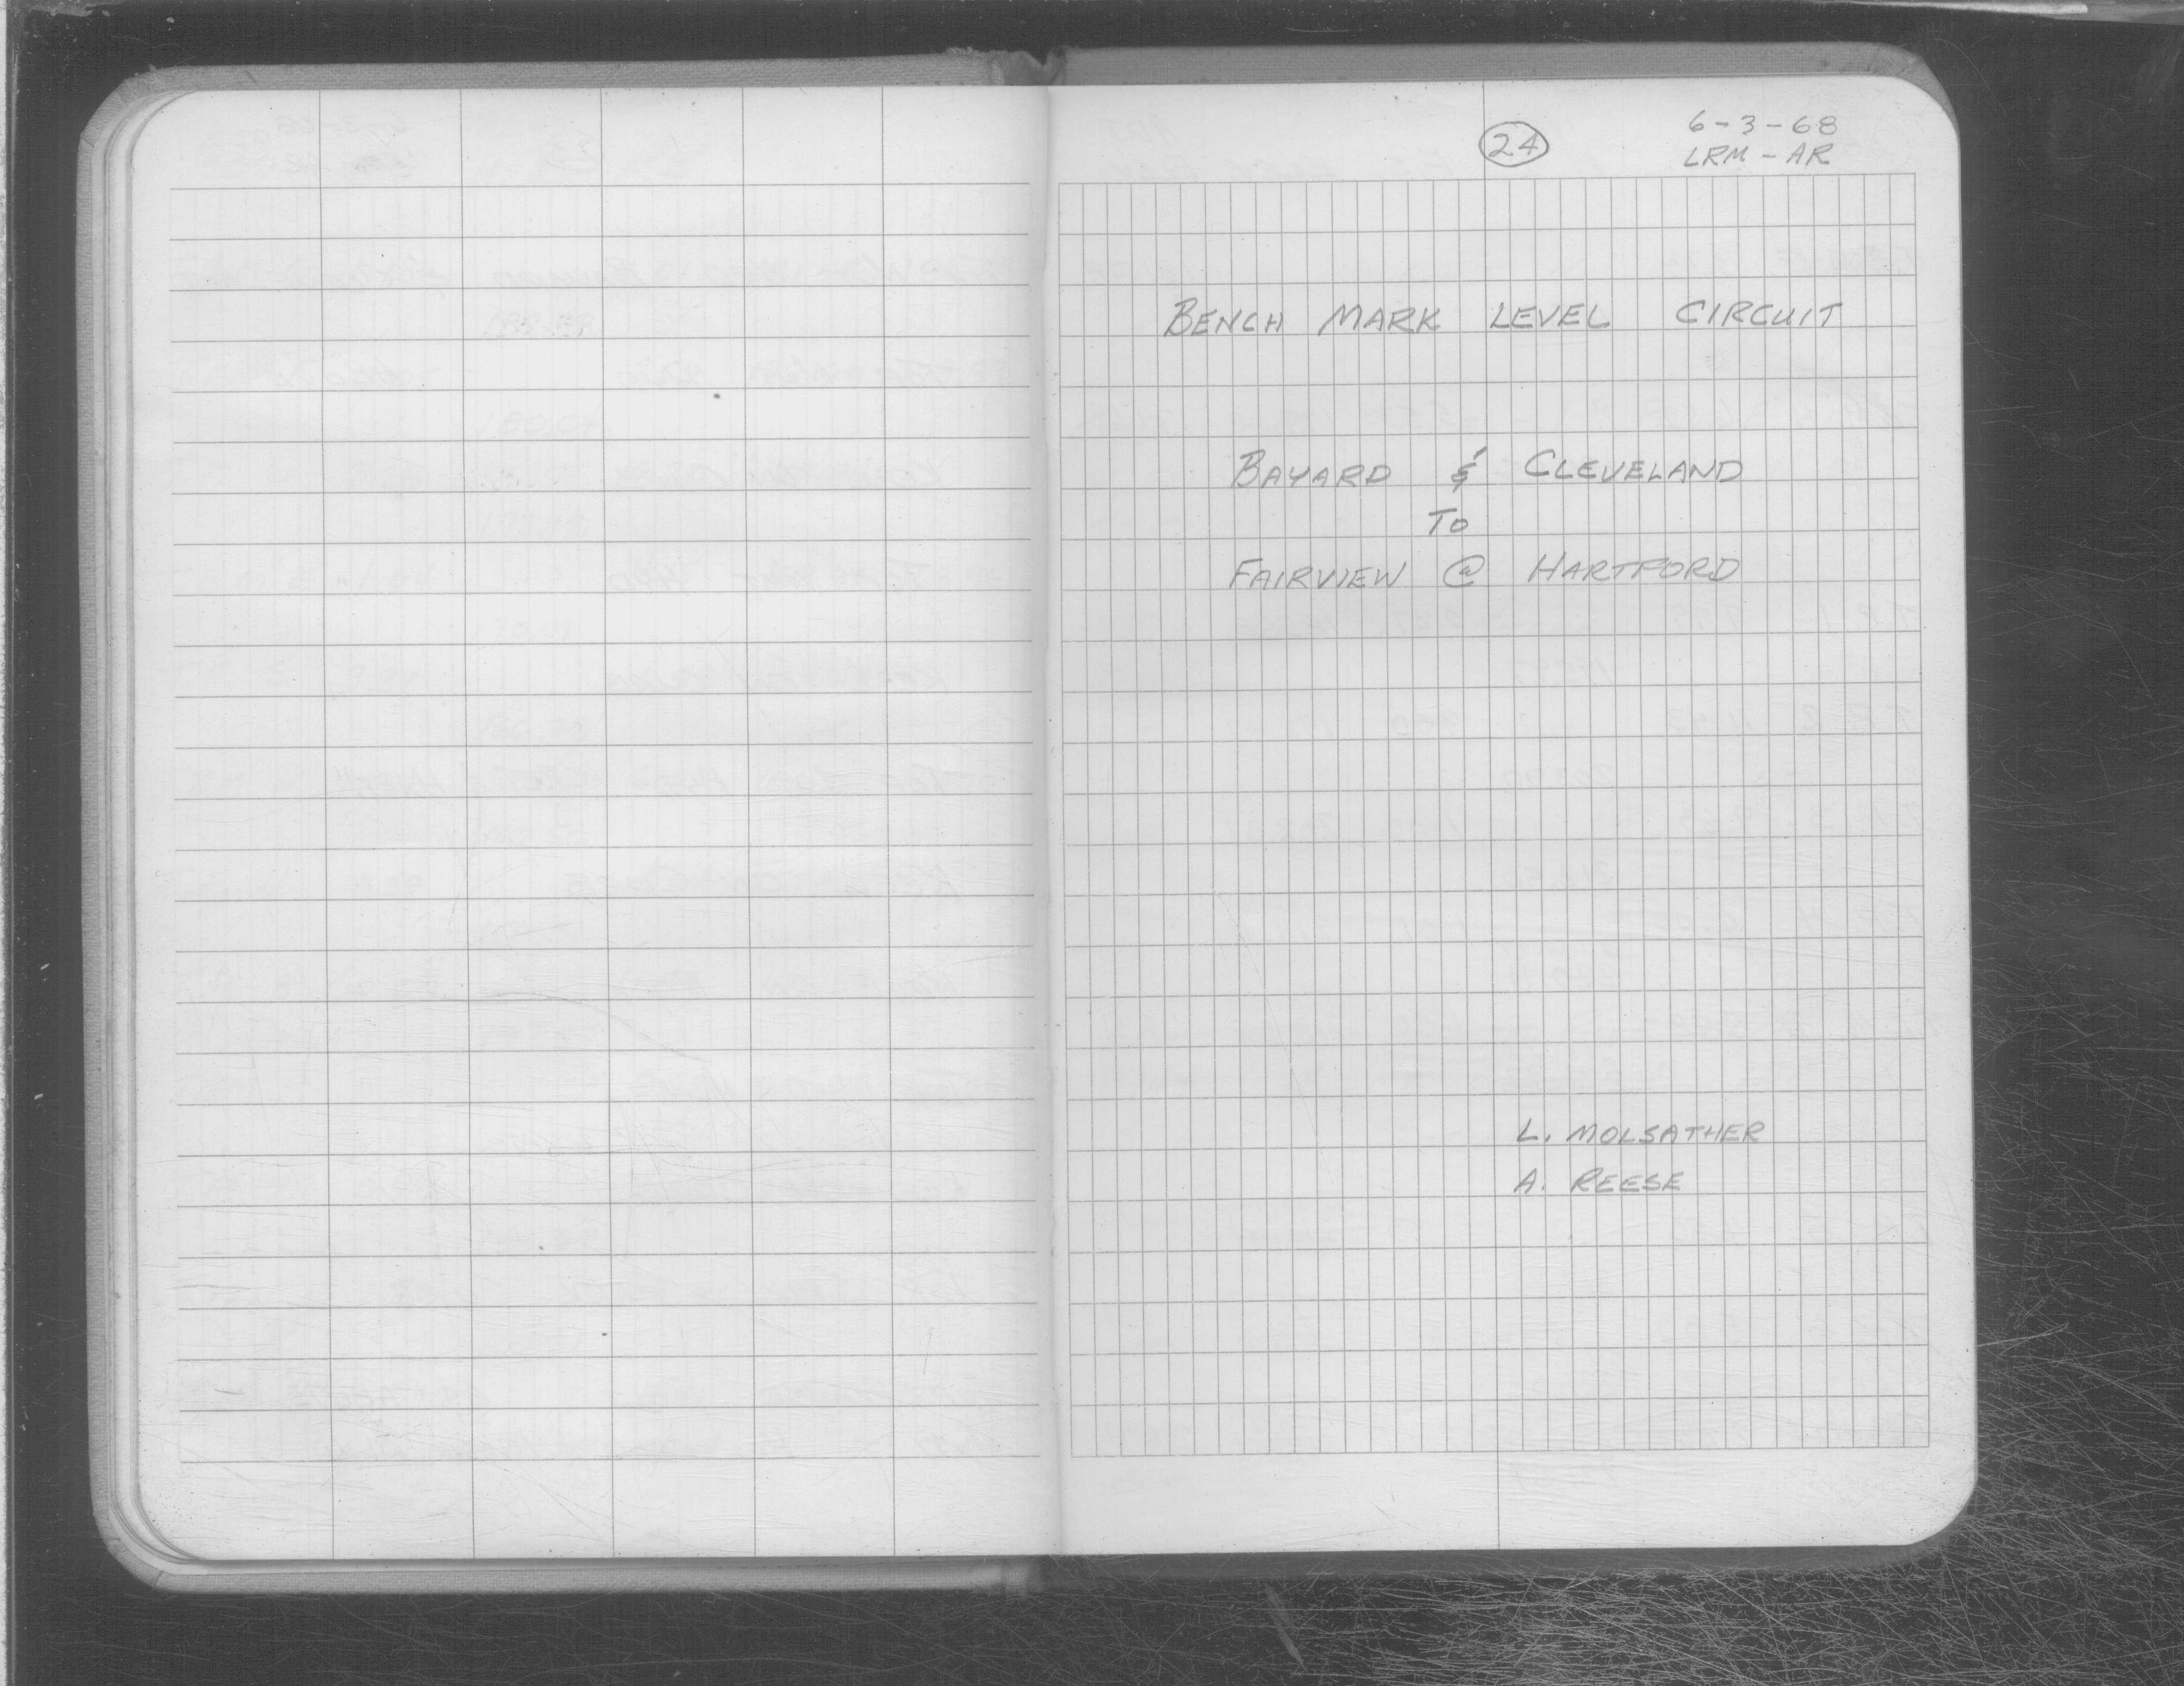 24
6-3-68
LRM-AR
BENCH MARK LEVEL CIRCUIT
BAYARD & CLEVELAND
TO
FAIRVIEW @ HARTFORD
L. MOLSATHER
A. REESE